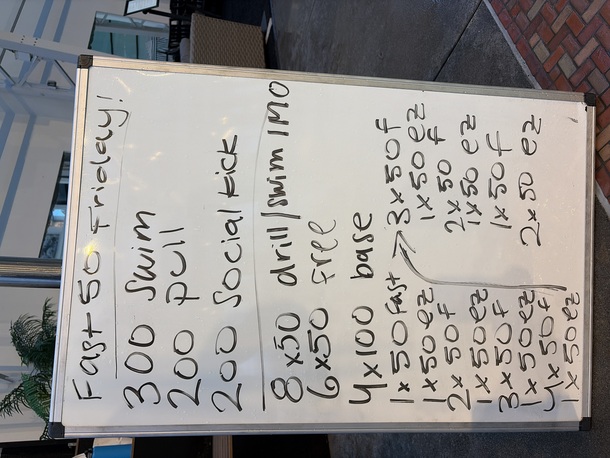 Fast 50 Friday!
300 swim
200 pull
200 social kick
8x50 drill/swim IMO
6x50 free
4x100 base
1x50 fast
1x50 ez
2x50 f
1x50 ez
3x50 f
1x50 ez
4x50 f
1x50 ez
3x50 f
1x50 ez
2x50 f
1x50 ez
1x50 f
2x50 ez